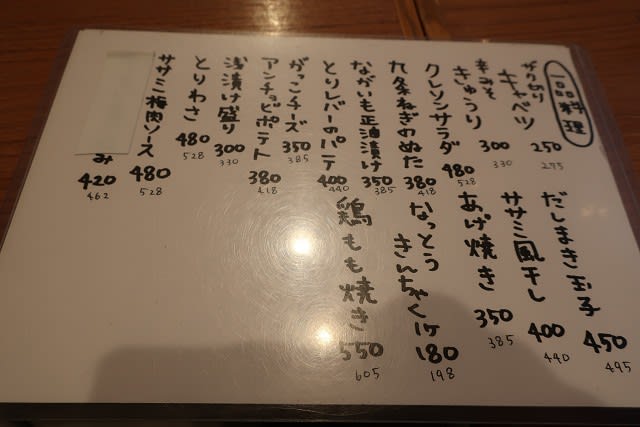 一品料理
ざっくりキャベツ 250 275
辛みそきゅうり 300 330
クレソンサラダ 480 528
九条ねぎのぬた 380 418
ながいも正油漬け 350 385
とりレバーのパテ 400 440
がっこチーズ 350 385
アンチョビポテト 380 418
浅漬け盛り 300 330
とりわさ 480 528
ササミ梅肉ソース 480 528
み 420 462
だしまき玉子 450 495
ササミ風干し 400 440
あげ焼き 350 385
なっとうきんちゃく1ヶ 180 198
鶏もも焼き 550 605